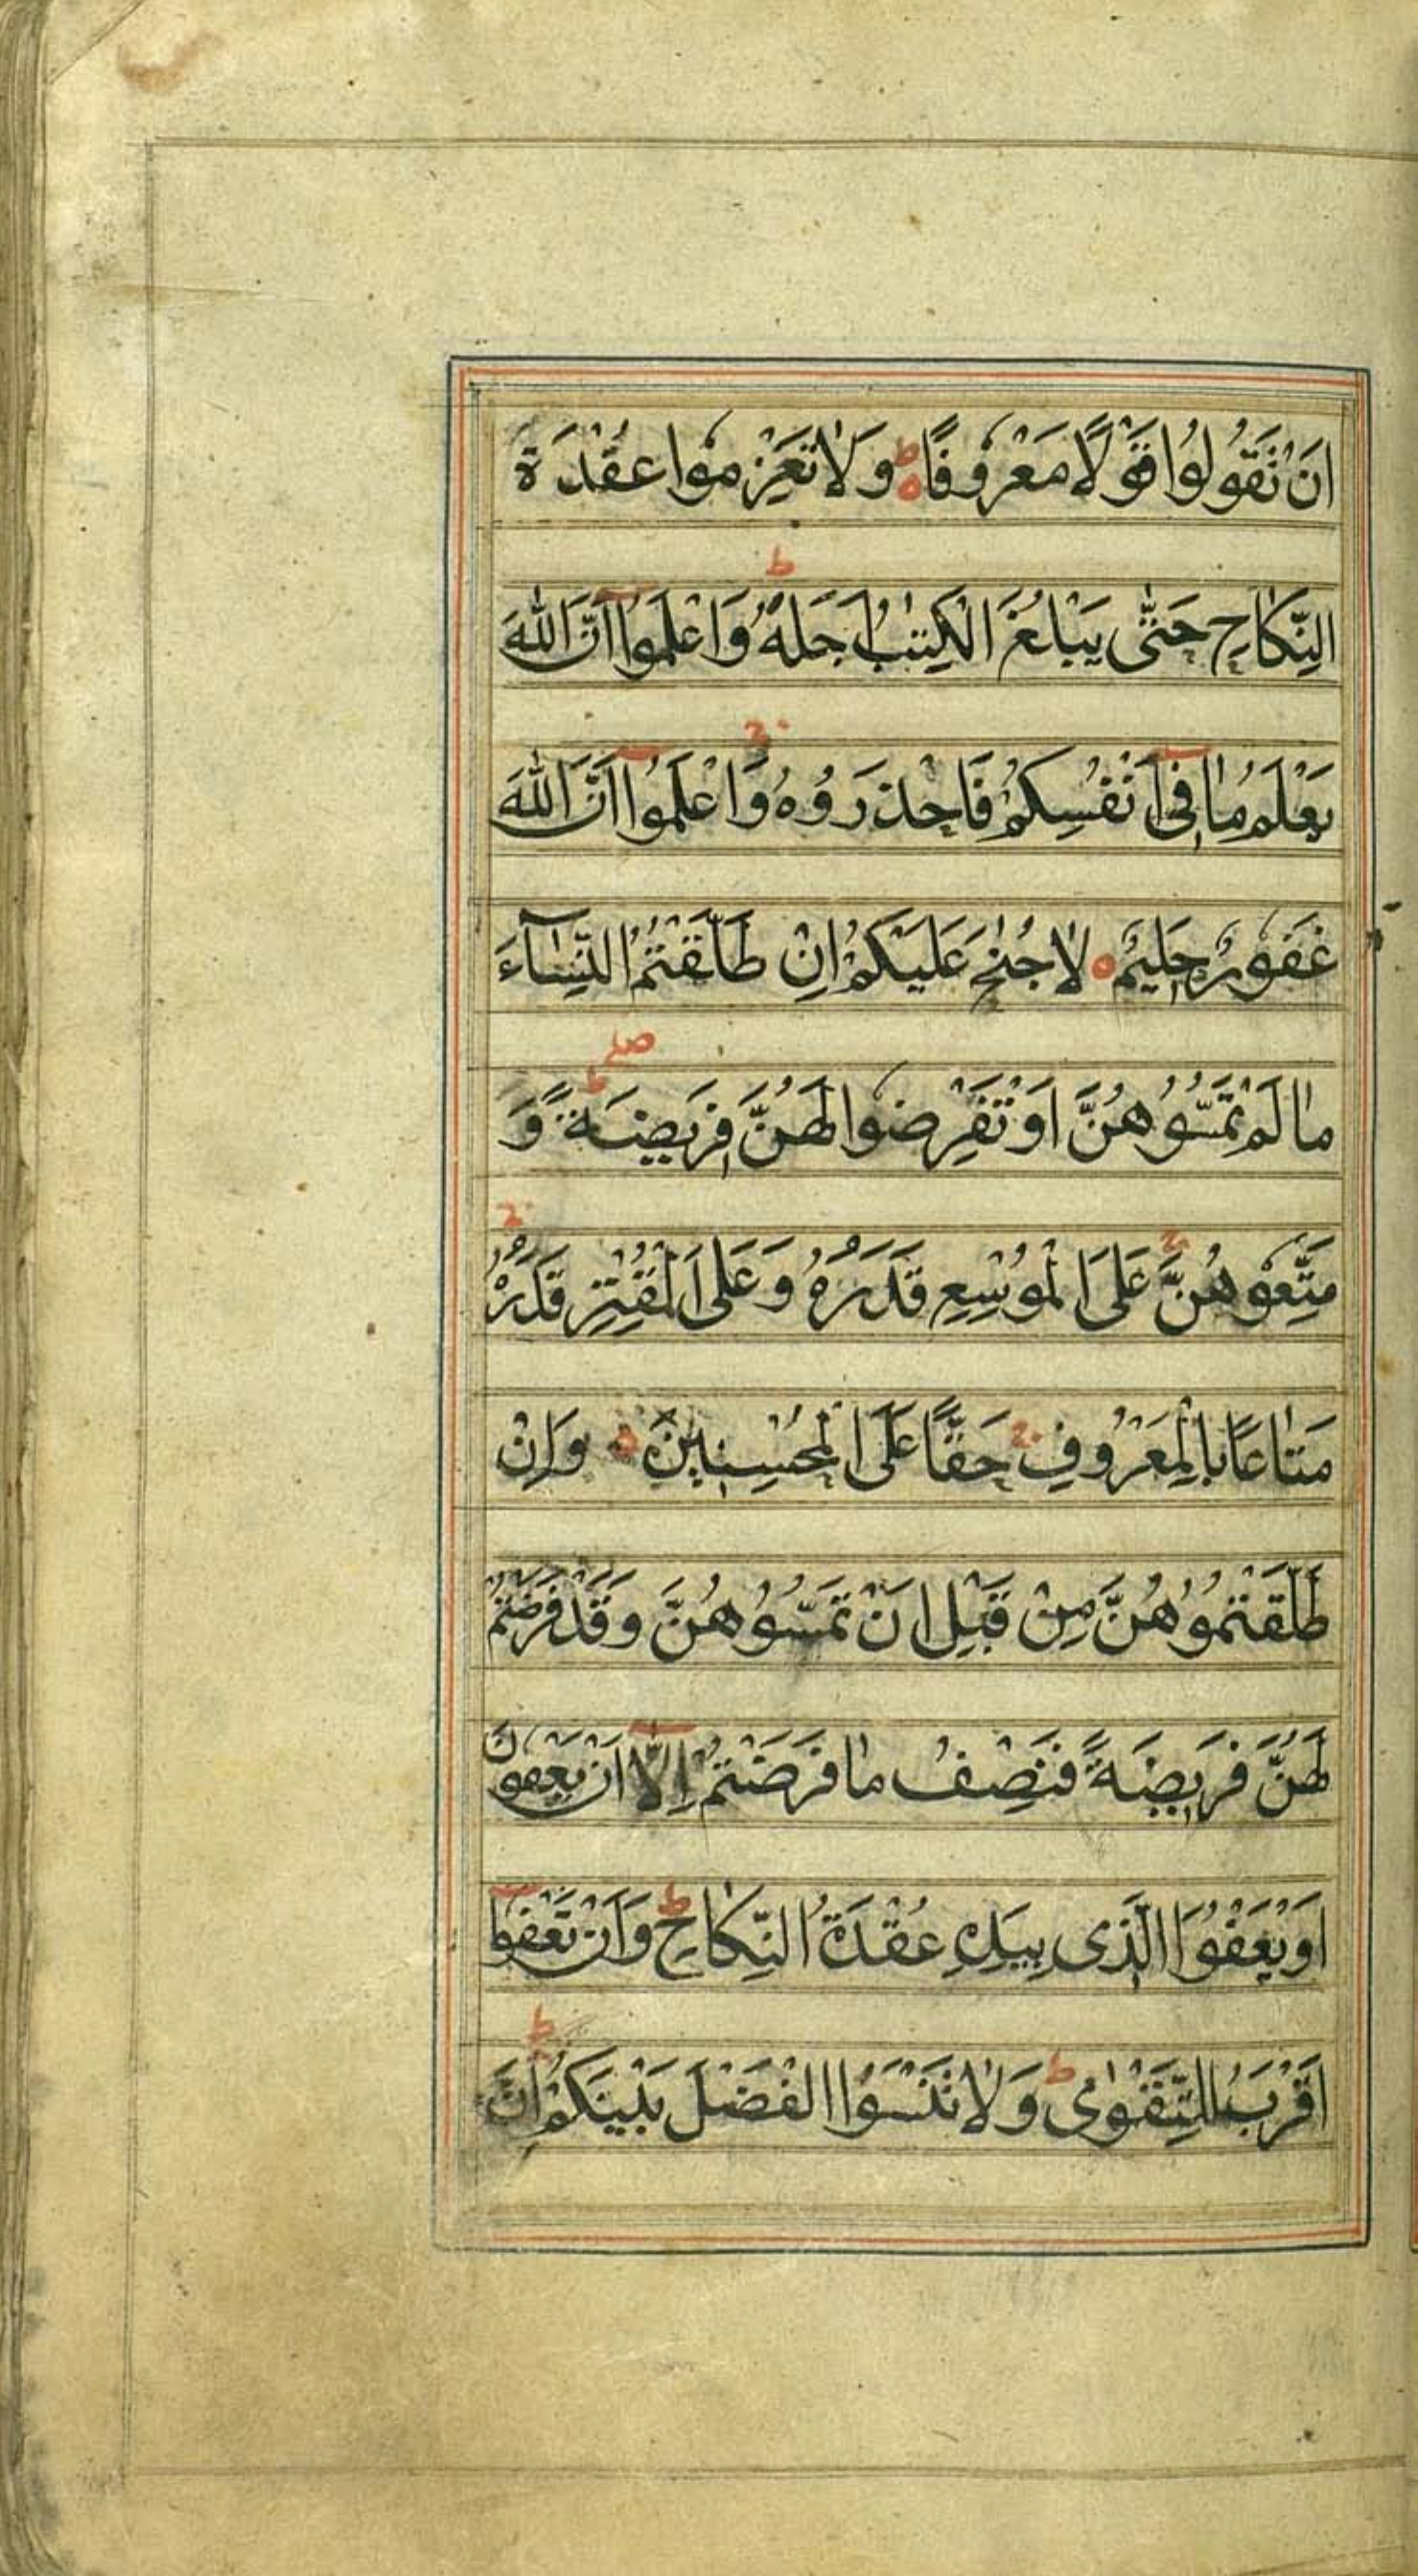 اَنْ تَقُولُوا قَوْلًا مَعْرُوفًا ط ه وَلَا تَعْزِمُوا عُقْدَةَ
النِّكَاحِ حَتّٰى يَبْلُغَ الْكِتٰبُ اَجَلَهُ ط وَاعْلَمُوٓا اَنَّ اللّٰهَ
يَعْلَمُ مَا فِىٓ اَنْفُسِكُمْ فَاحْذَرُوهُ ج وَاعْلَمُوٓا اَنَّ اللّٰهَ
غَفُورٌ حَلِيمٌ ه لَا جُنٰحَ عَلَيْكُمْ اِنْ طَلَّقْتُمُ النِّسَآءَ
مَا لَمْ تَمَسُّوهُنَّ اَوْ تَفْرِضُوا لَهُنَّ فَرِيضَةً ط صلے وَ
مَتِّعُوهُنَّ ج عَلَى الْمُوسِعِ قَدَرُهُ وَعَلَى الْمُقْتِرِ قَدَرُهُ ج
مَتَاعًا بِالْمَعْرُوفِ ج حَقًّا عَلَى الْمُحْسِنِينَ ه وَاِنْ
طَلَّقْتُمُوهُنَّ مِنْ قَبْلِ اَنْ تَمَسُّوهُنَّ وَقَدْ فَرَضْتُمْ
لَهُنَّ فَرِيضَةً فَنِصْفُ مَا فَرَضْتُمْ اِلَّآ اَنْ يَعْفُونَ
اَوْ يَعْفُوَا الَّذِى بِيَدِهِ عُقْدَةُ النِّكَاحِ ط وَاَنْ تَعْفُوٓا
اَقْرَبُ لِلتَّقْوٰى ط وَلَا تَنْسَوُا الْفَضْلَ بَيْنَكُمْ ط اِنَّ